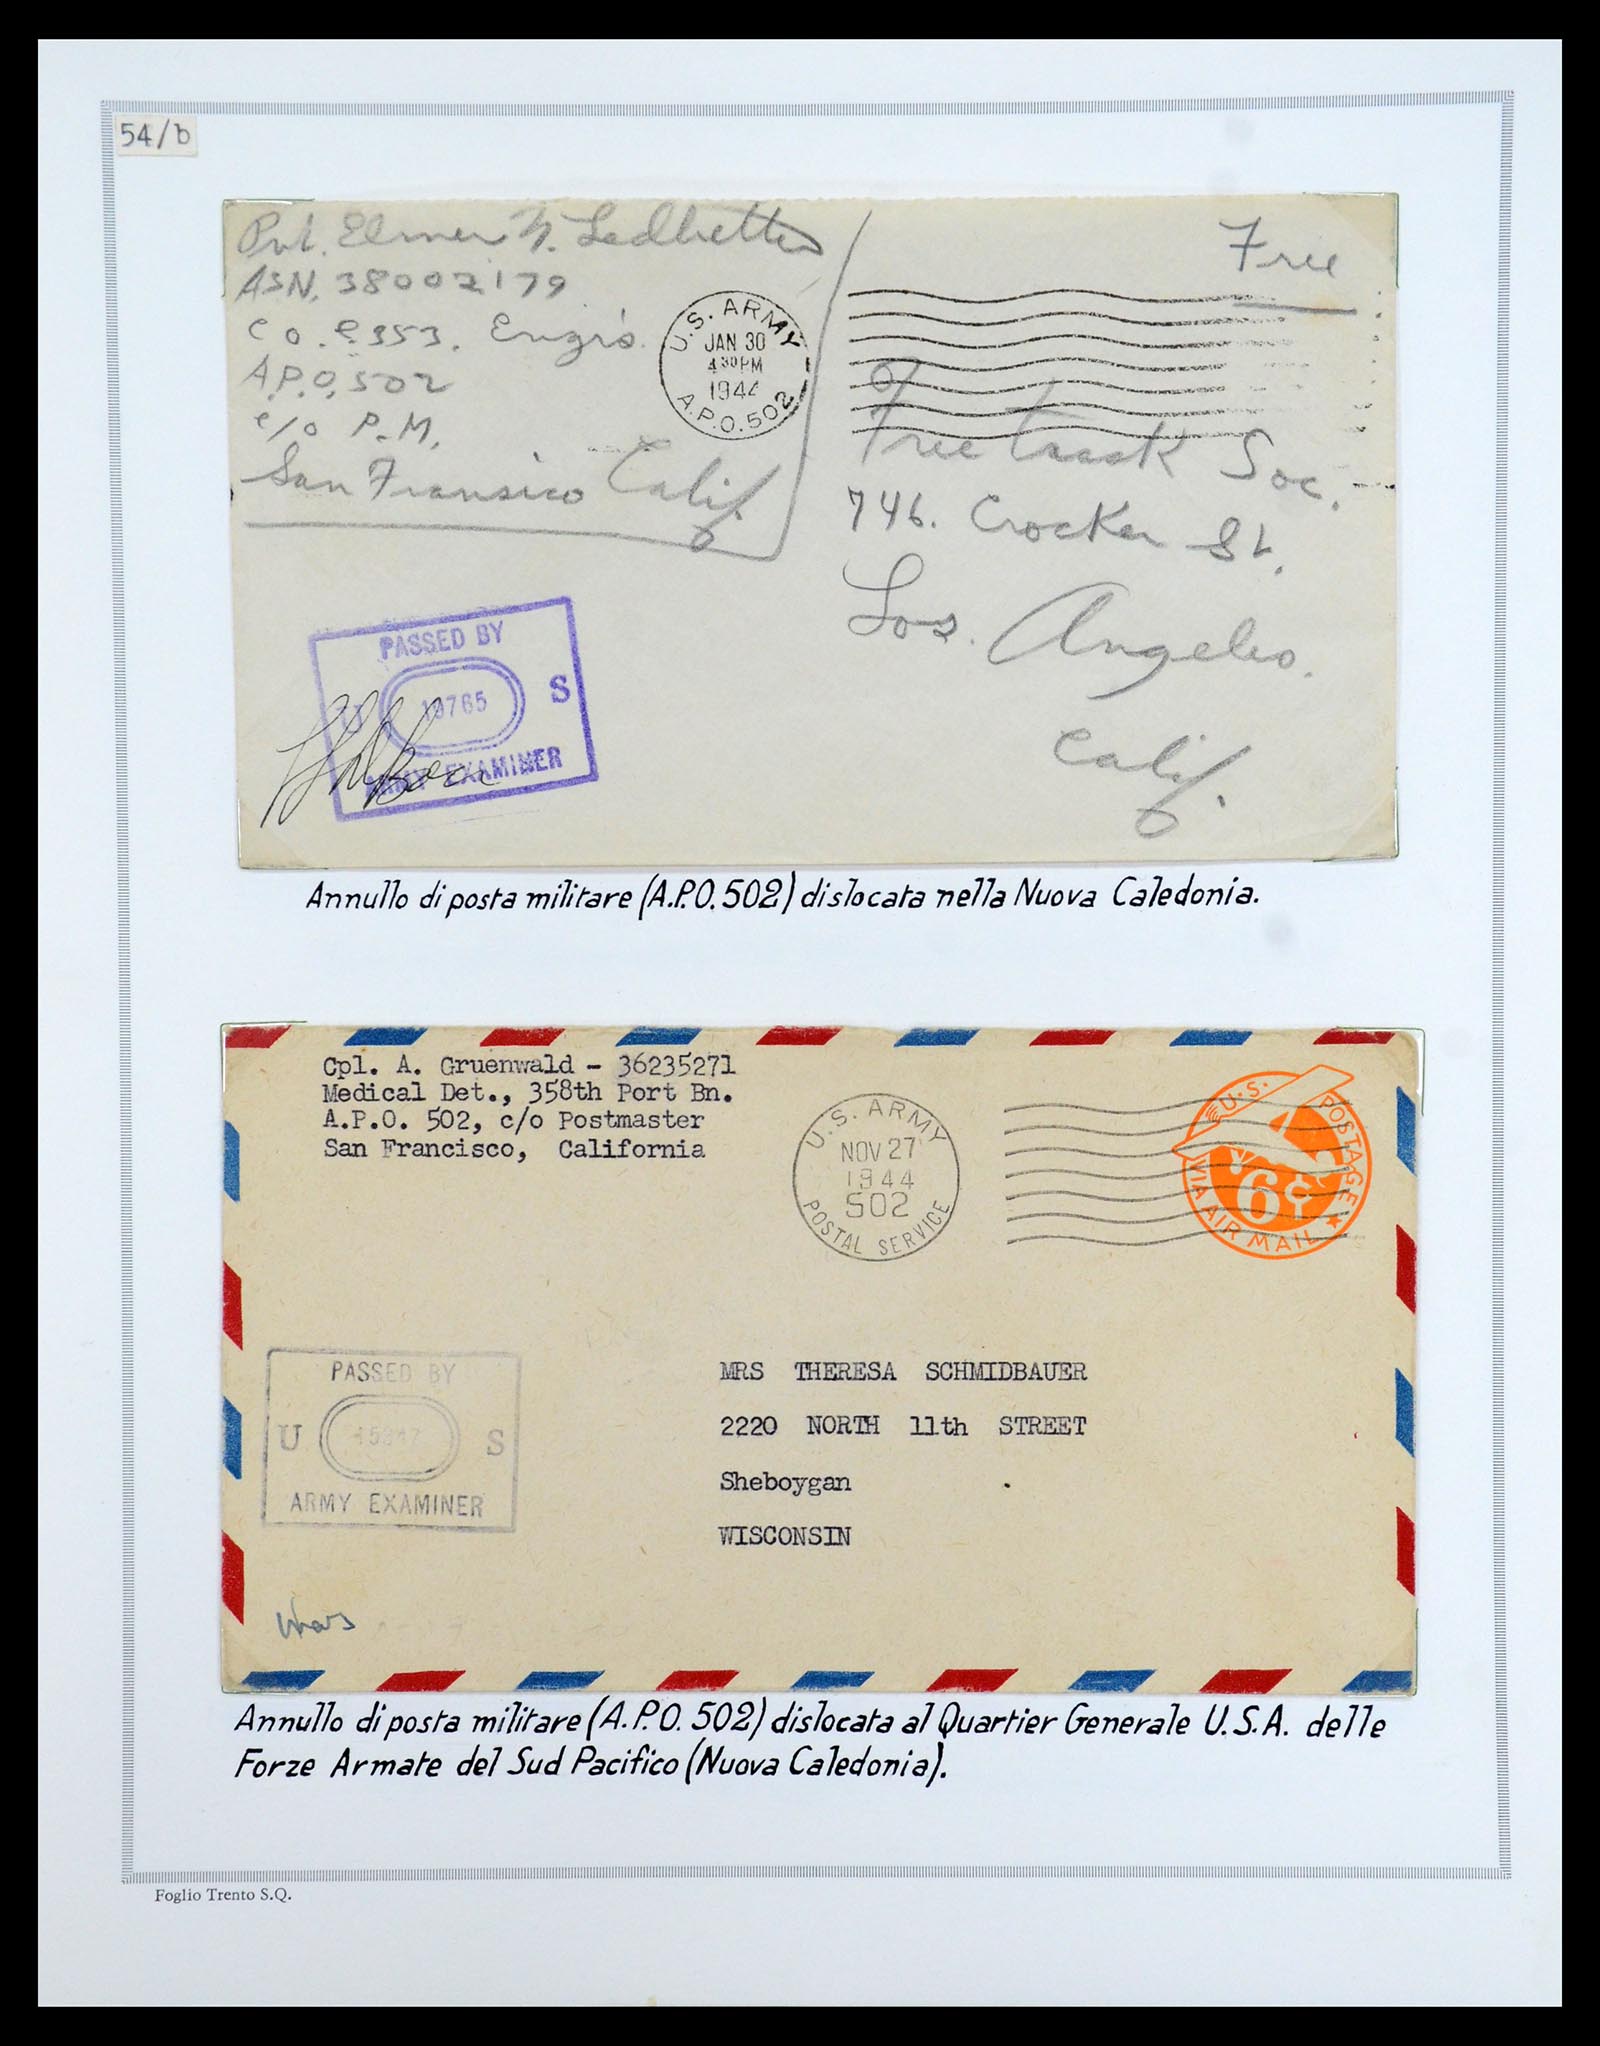 54/b
Pvt. Elmer N. Ledbetter
ASN. 38002179
Co. C 353. Engrs.
A.P.O. 502
c/o P.M.
San Fransico Calif.
U.S. ARMY
JAN 30
4 30 PM
1944
A.P.O. 502
Free
Free Soc.
746. Crocker St.
Los. Angeles.
Calif.
PASSED BY
U S
ARMY EXAMINER
Annullo di posta militare (A.P.O. 502) dislocata nella Nuova Caledonia.
Cpl. A. Gruenwald - 36235271
Medical Det., 358th Port Bn.
A.P.O. 502, c/o Postmaster
San Francisco, California
U.S. ARMY
NOV 27
1944
502
POSTAL SERVICE
U.S. POSTAGE
6¢
VIA AIR MAIL
PASSED BY
U S
ARMY EXAMINER
MRS THERESA SCHMIDBAUER
2220 NORTH 11th STREET
Sheboygan
WISCONSIN
Annullo di posta militare (A.P.O. 502) dislocata al Quartier Generale U.S.A. delle
Forze Armate del Sud Pacifico (Nuova Caledonia).
Foglio Trento S.Q.